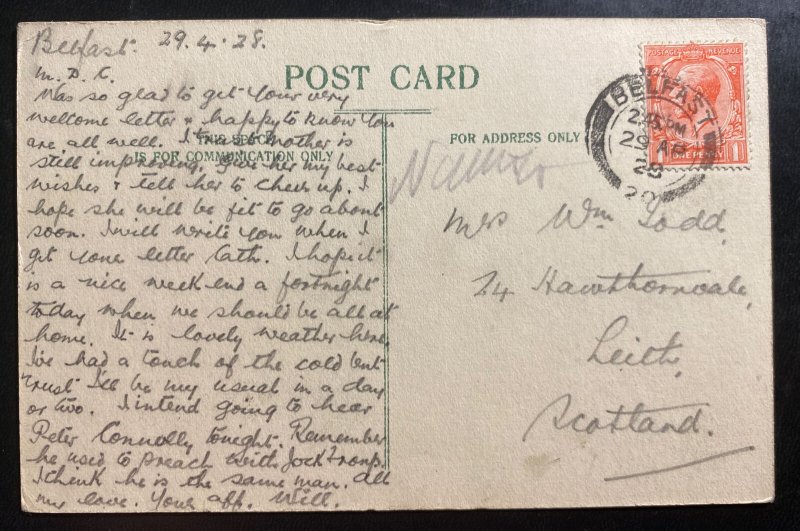 Belfast. 29.4.28.
M.D.C.
POST CARD
Was so glad to get your very
welcome letter & happy to know you
are all well. Mother is
THIS SPACE
still improving. Give her my best
IS FOR COMMUNICATION ONLY
wishes & tell her to cheer up. I
hope she will be fit to go about
soon. I will write you when I
get your letter Cath. I hope it
is a nice week end a fortnight
today when we should be all at
home. It is lovely weather here.
I've had a touch of the cold but
trust I'll be my usual in a day
or two. I intend going to hear
Peter Connolly tonight. Remember
he used to preach with Jock
I think he is the same man. All
my love. Your aff. Will.
FOR ADDRESS ONLY
POSTAGE REVENUE
ONE PENNY
1
1
BELFAST
2.45 PM
29 AP
28
Mrs Wm Todd,
24 Hawthornvale,
Leith,
Scotland.